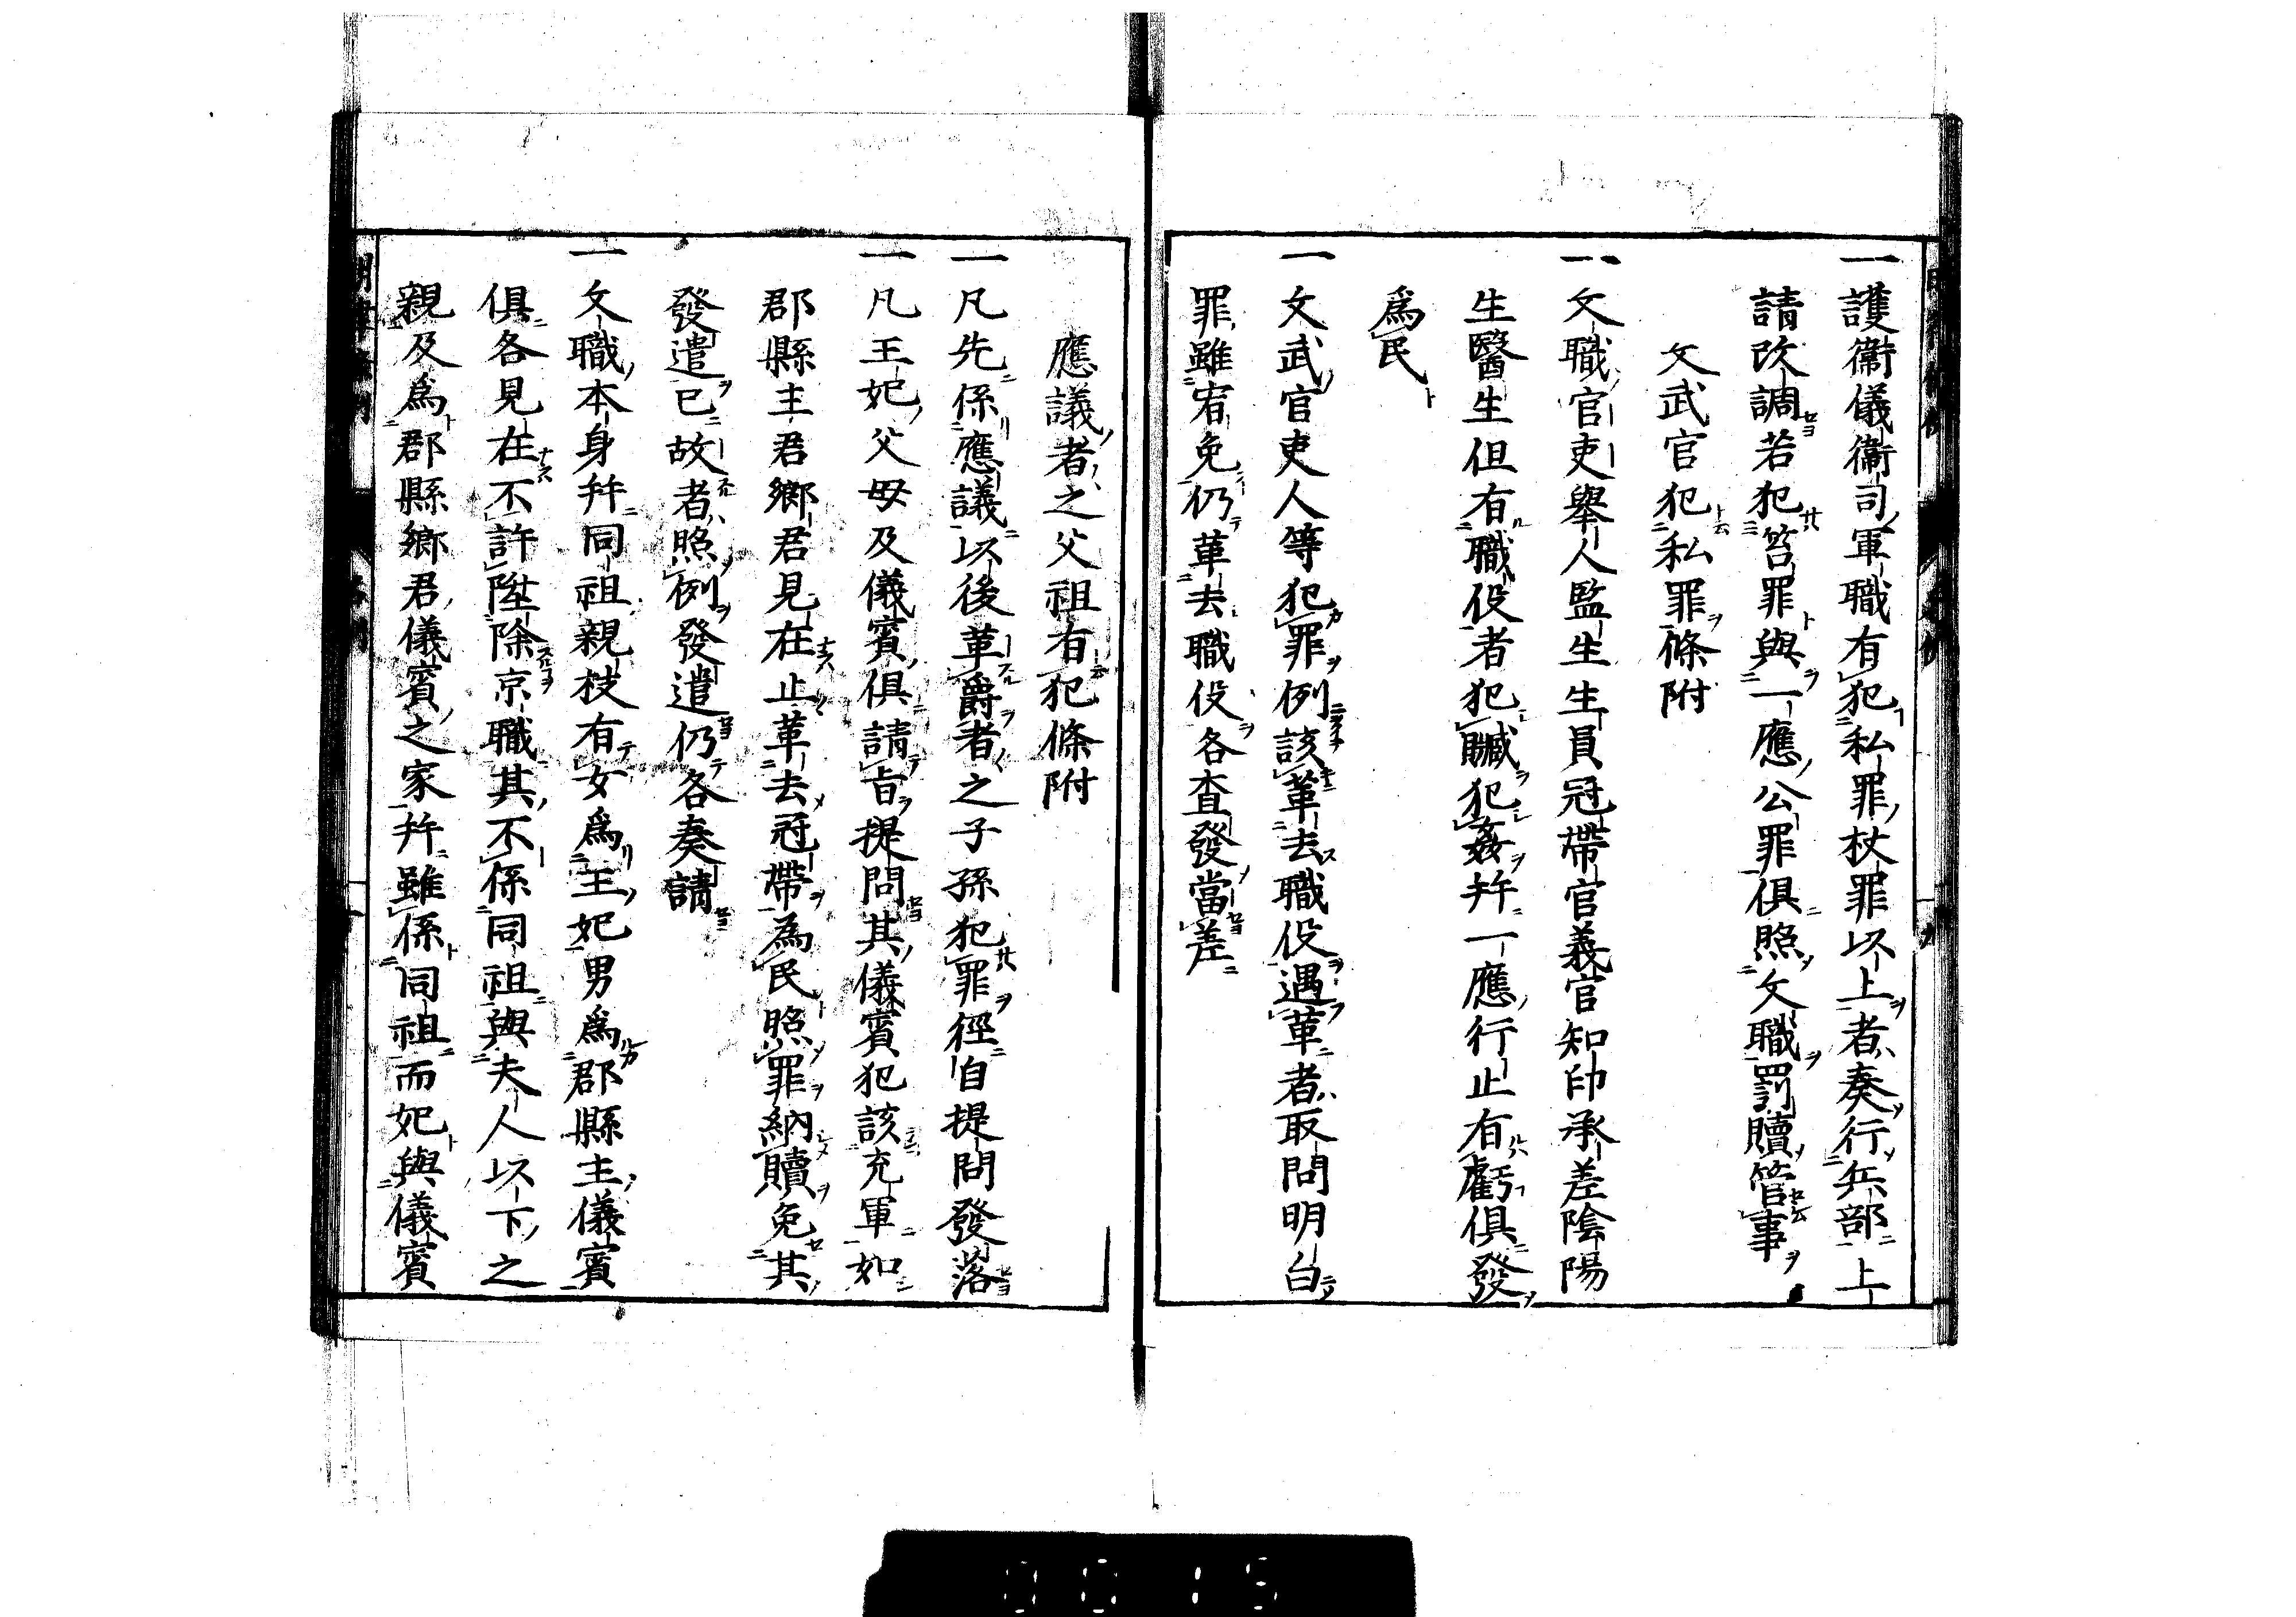 一護衞儀衞司軍職有犯私罪杖罪以上者奏行兵部上
請改調若犯笞罪與一應公罪俱照文職罰贖管事
文武官犯私罪條附
一文職官吏舉人監生生員冠帶官義官知印承差陰陽
生醫生但有職役者犯贓犯姦幷一應行止有虧俱發
爲民
一文武官吏人等犯罪例該革去職役遇革者取問明白
罪雖宥免仍革去職役各查發當差
應議者之父祖有犯條附
一凡先係應議以後革爵者之子孫犯罪徑自提問發落
一凡王妃父母及儀賓俱請旨提問其儀賓犯該充軍如
郡縣主君鄉君見在止革去冠帶為民照罪納贖免其
發遣已故者照例發遣仍各奏請
一文職本身幷同祖親枝有女爲王妃男爲郡縣主儀賓
俱各見在不許陞除京職其不係同祖與夫人以下之
親及爲郡縣鄉君儀賓之家幷雖係同祖而妃與儀賓
0015